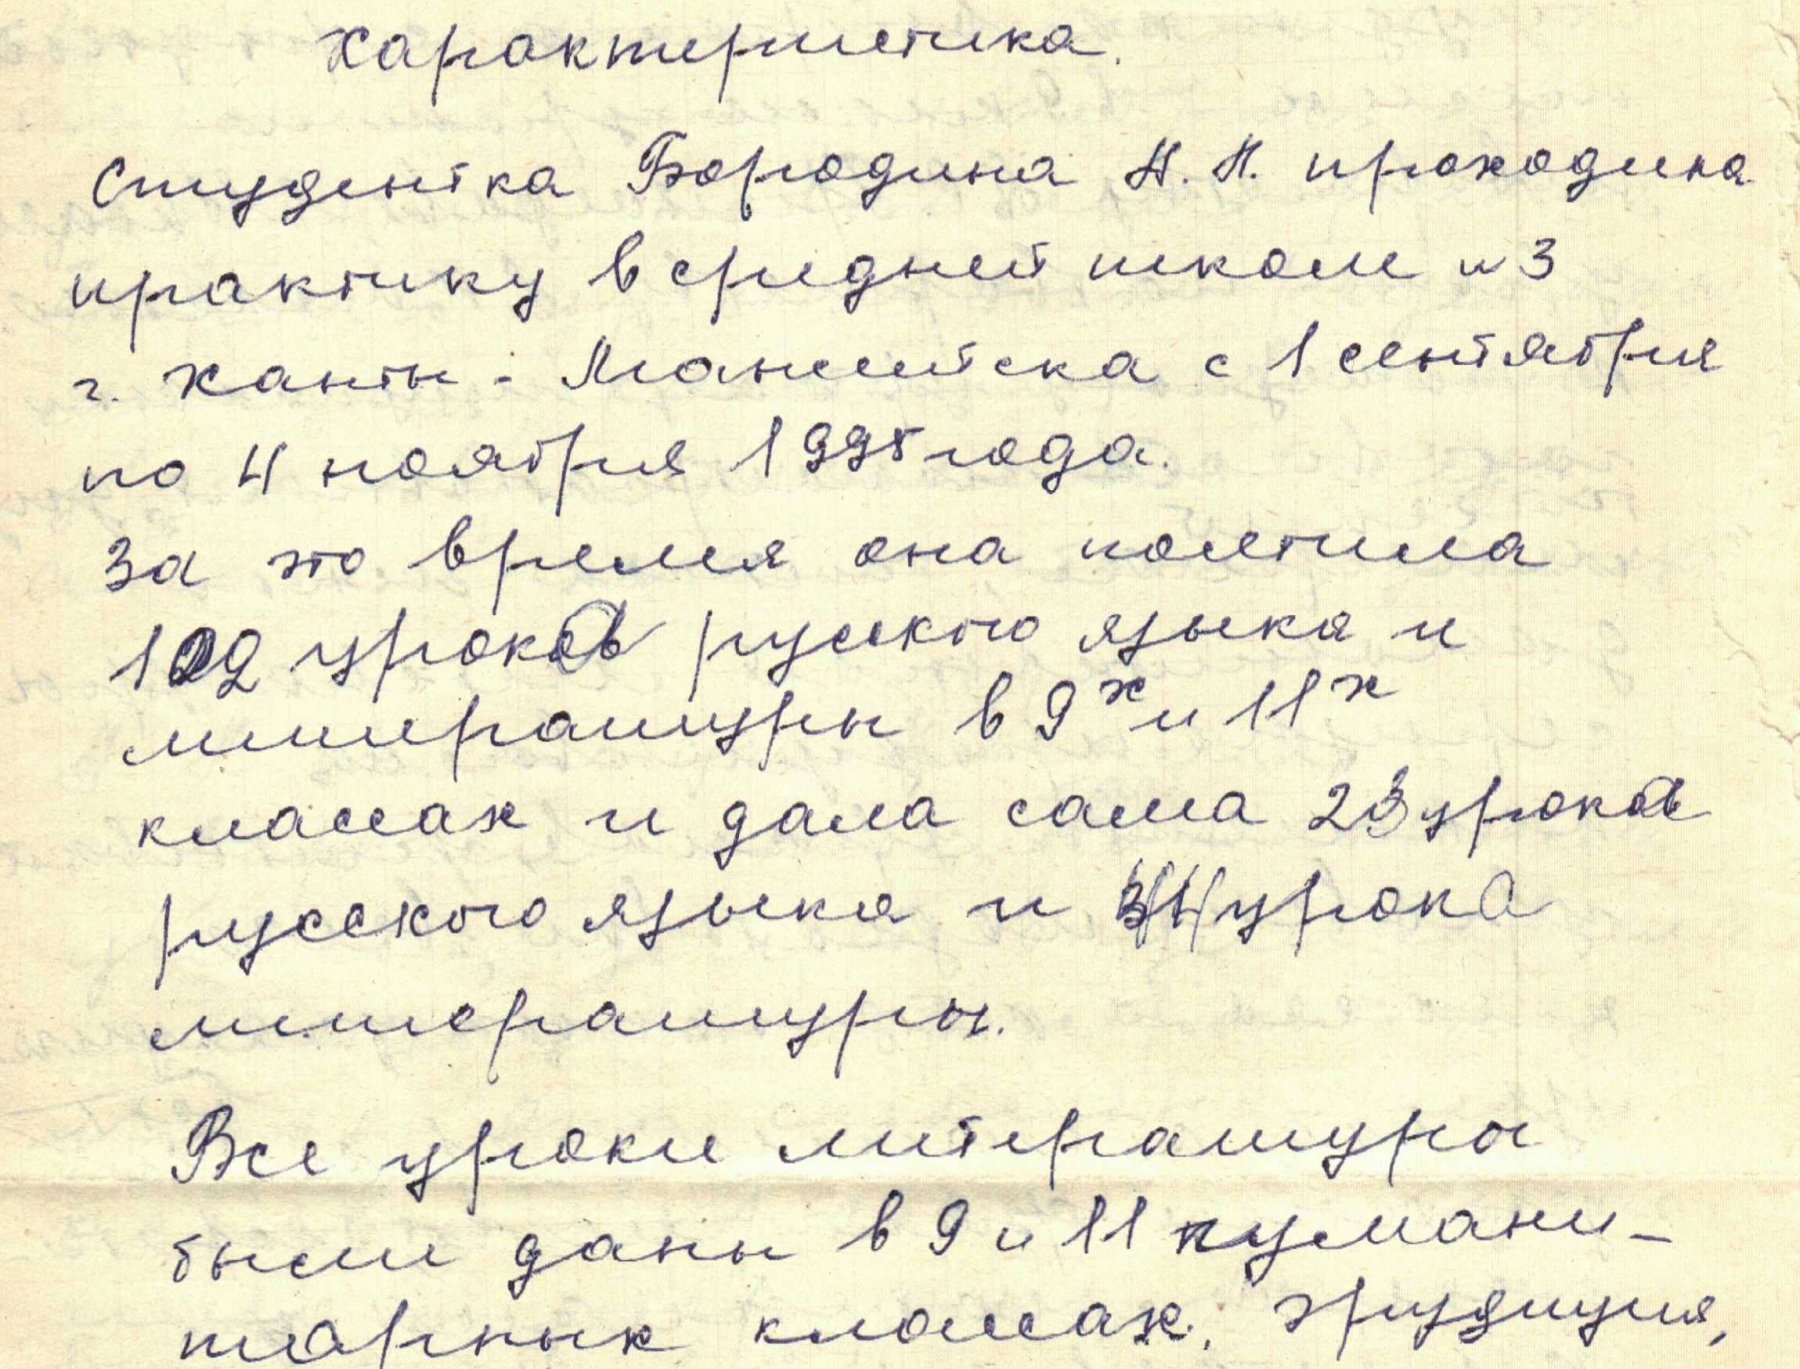 Характеристика.
Студентка Бородина Н. П. проходила
практику в средней школе № 3
г. Ханты - Мансийска с 1 сентября
по 4 ноября 1995 года.
За это время она посетила
102 урока русского языка и
литературы в 9х и 11х
классах и дала сама 23 урока
русского языка и 34 урока
литературы.
Все уроки литературы
были даны в 9 и 11 гумани-
тарных классах. Эрудиция,